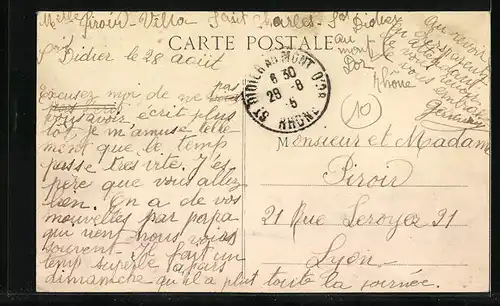 Melle Piroir - Villa Saint Charles - St Didier
au
mont
Dor
Rhône
CARTE POSTALE
Didier le 28 août
Excusez moi de ne pas
vous avoir écrit plus
tôt, je m'amuse telle
ment que le temps
passe très vite. J'es
père que vous allez
bien. On a de vos
nouvelles par papa
qui vient nous voir
souvent - Il fait un
temps superbe à part
dimanche qu'il a plu toute la journée.
Au revoir
je vous
embrasse
ST DIDIER AU MONT D'OR
6 30
29 - 8
5
RHÔNE
10
Monsieur et Madame
Piroir
21 Rue Leroyer 21
Lyon